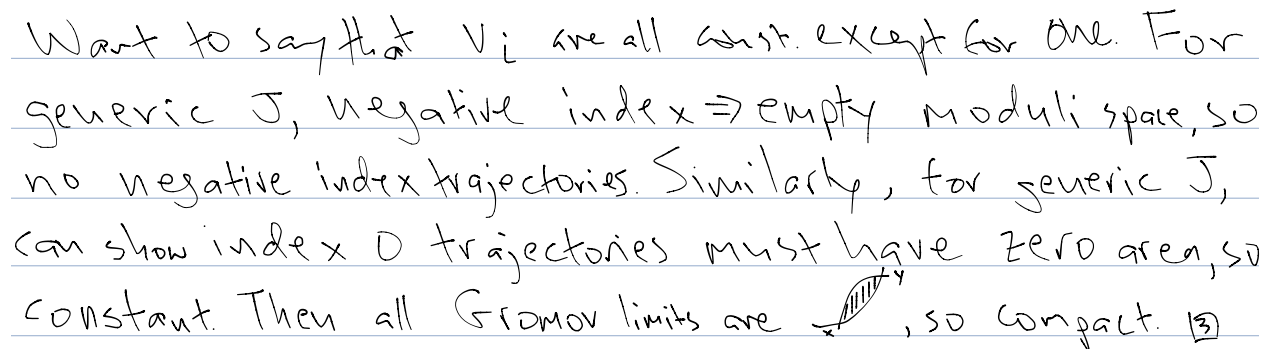 Want to say that Vi are all const. except for one. For
generic J, negative index ⇒ empty moduli space, so
no negative index trajectories. Similarly, for generic J,
can show index 0 trajectories must have zero area, so
constant. Then all Gromov limits are x y, so compact. 3